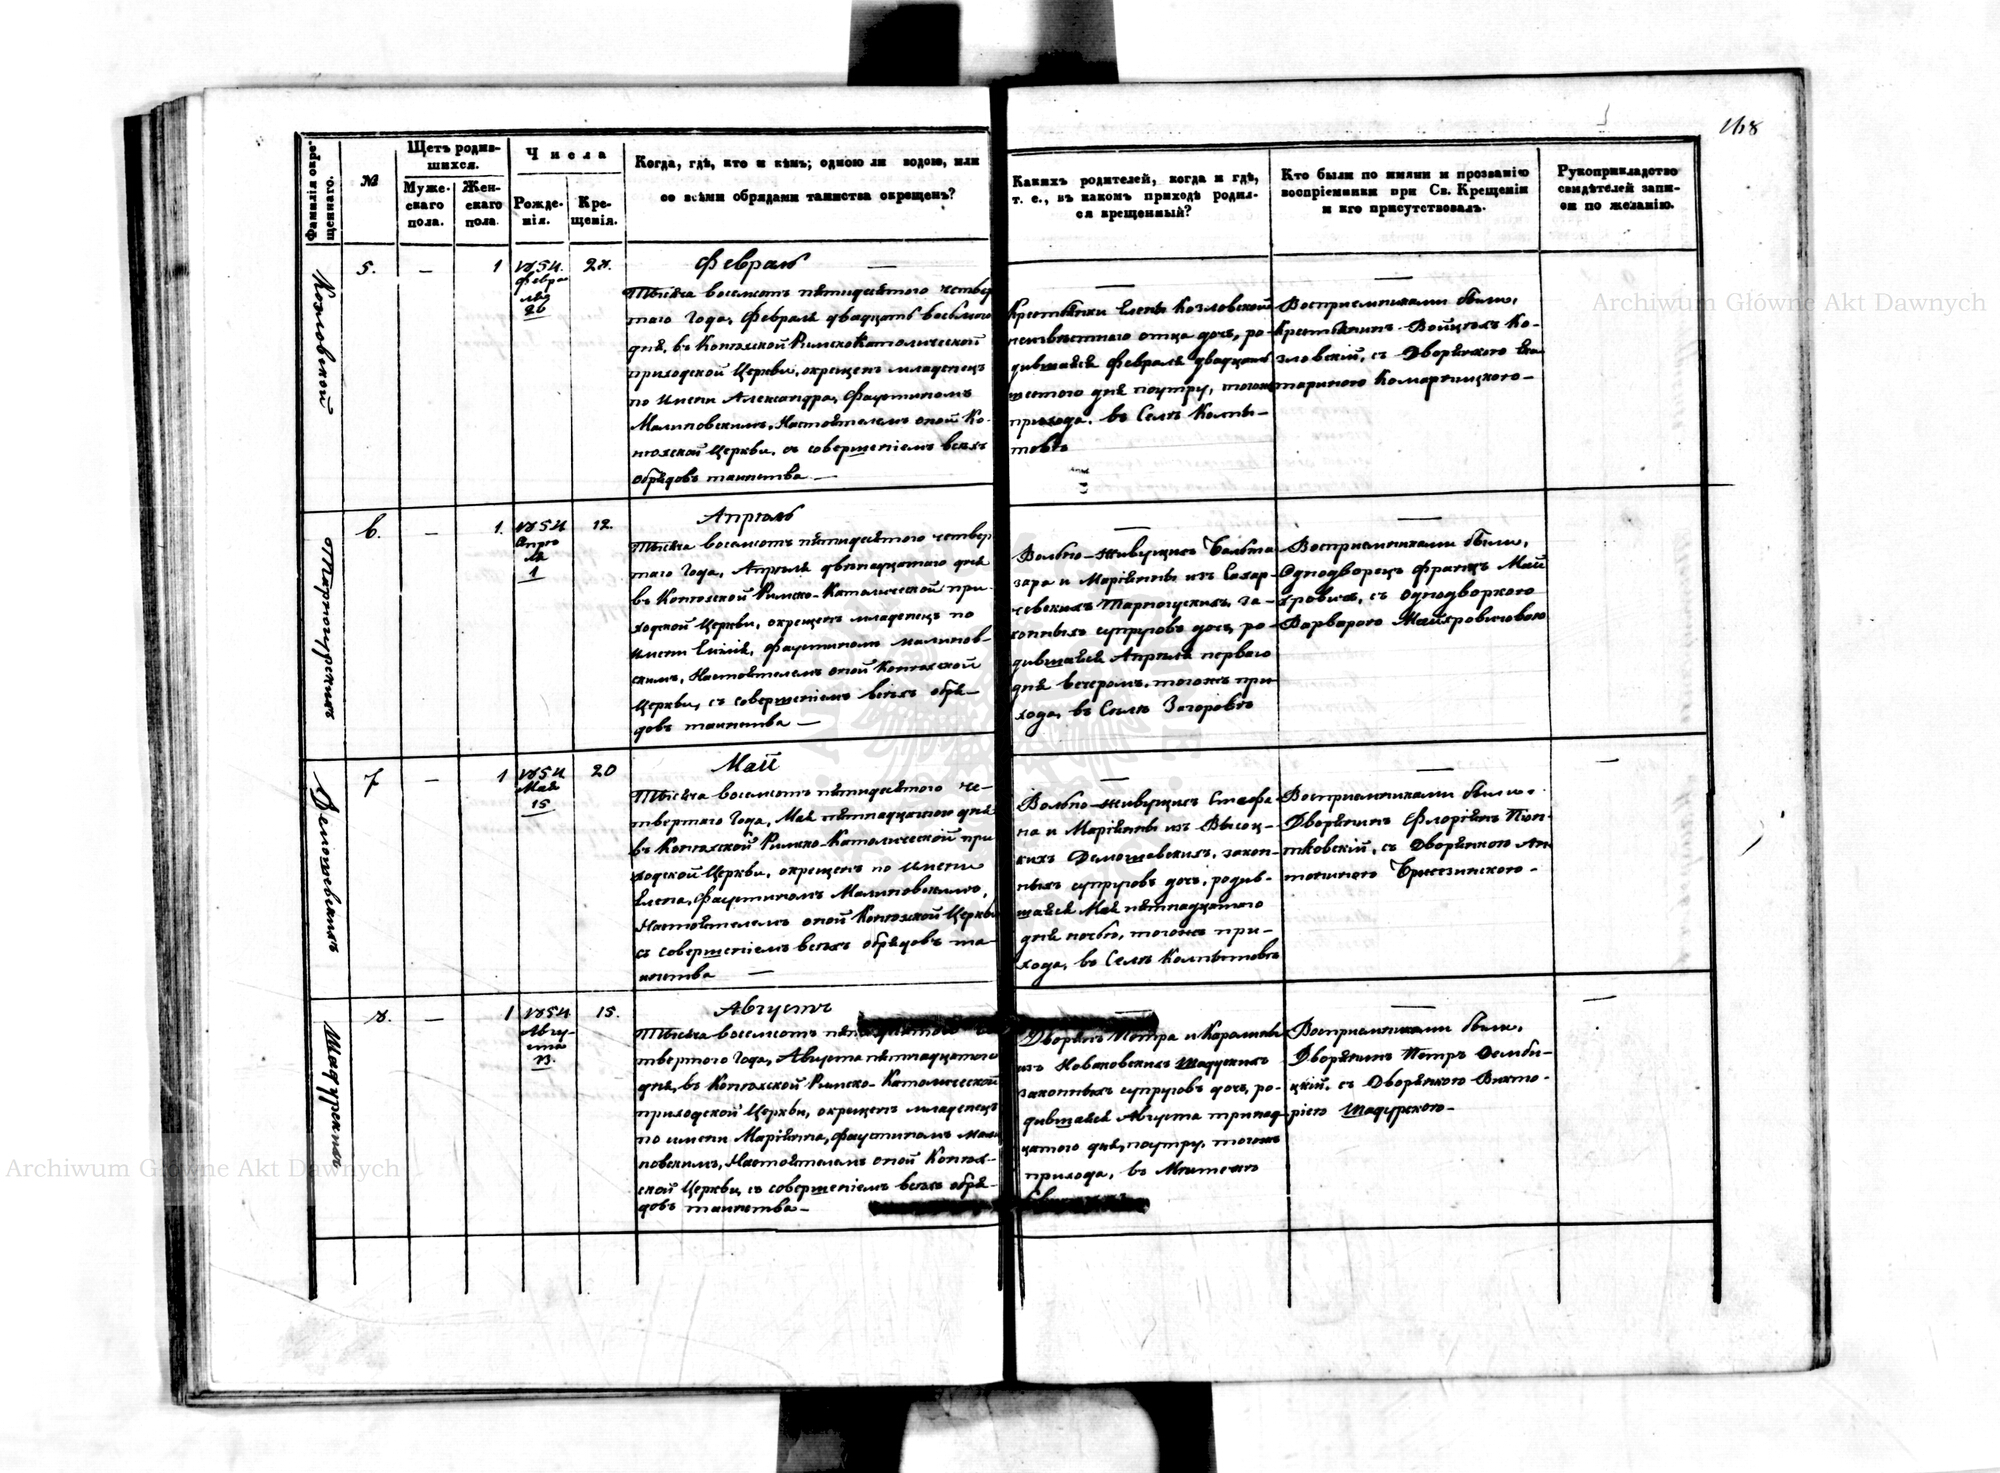 168
Фамилія окре-
щеннаго.
№
Щетъ родив-
шихся.
Муже-
скаго
пола.
Жен-
скаго
пола.
Числа
Рожде-
нія.
Кре-
щенія.
Когда, гдѣ, кто и кѣмъ; одною ли водою, или
со всѣми обрядами таинства окрещенъ?
Какихъ родителей, когда и гдѣ,
т. е., въ какомъ приходѣ родил-
ся крещенный?
Кто были по имяни и прозванію
воспріемники при Св. Крещеніи
и кто присутствовалъ.
Рукоприкладство
свидѣтелей запи-
си по желанію.
Козловской
5.
—
1
1854.
Февра
ля
26
28.
Февраль
Тысяча восемсотъ пятидесятого четвер
таго Года, Февраля двадцать восьмого
дня, въ Римско Католической
приходской Церкви, окрещенъ младенецъ
по имени Александра, Фаустиномъ
Малиновскимъ, Настоятелемъ оной Ко-
Церкви, съ совершеніемъ всѣхъ
обрядовъ таинства —
Крестьянки Елены Козловской
неизвѣстнаго отца дочь, ро-
дившаяся Февраля двадцать
шестого дня поутру, тогожъ
прихода, въ Селѣ Колпы-
товѣ
Воспріемниками были,
Крестьянинъ Войцѣхъ Ко-
зловскій, съ Дворянкою Ека
териною Комарницкою —
Тарногурскихъ
6.
—
1.
1854
Апрѣ
ля
1
12.
Апрѣль
Тысяча восемсотъ пятидесятого четвер
таго Года, Апрѣля двѣнадцатаго дня
въ Римско-Католической при-
ходской Церкви, окрещенъ младенецъ по
имени Фаустиномъ Малинов-
скимъ, Настоятелемъ оной
Церкви, съ совершеніемъ всѣхъ обря-
довъ таинства —
Вольно-живущихъ Бальта
зара и Маріянны изъ Сахар-
чевскихъ Тарногурскихъ, за-
конныхъ супруговъ дочь, ро-
дившаяся Апрѣля перваго
дня вечеромъ, тогожъ при
хода, въ Селѣ Загоровѣ
Воспріемниками были,
Однодворецъ Францъ Май
хровичъ, съ однодворкою
Варварою Майхровичовою
Демошевскихъ
7
—
1
1854
Мая
15
20
Май
Тысяча восемсотъ пятидесятого че-
твертаго Года, Мая пятнадцатого дня
въ Римско-Католической при
ходской Церкви, окрещенъ по имени
Елена, Фаустиномъ Малиновскимъ,
Настоятелемъ оной Церкви
съ совершеніемъ всѣхъ обрядовъ та-
инства —
Вольно-живущихъ Стефа
на и Маріянны изъ Высоц-
кихъ Демошевскихъ, закон-
ныхъ супруговъ дочь, родив-
шаяся Мая пятнадцатого
дня ночью, тогожъ при-
хода, въ Селѣ Колпытовѣ
Воспріемниками были:
Дворянинъ Флоріянъ
съ Дворянкою Ан
—
Шадурскихъ
8.
—
1
1854
Авгу-
ста
13.
15.
Августъ
Тысяча восемсотъ
твертого Года, Августа пятнадцатого
дня, въ Римско-Католической
приходской Церкви, окрещенъ младенецъ
по имени Маріянна, Фаустиномъ Мали
новскимъ, Настоятелемъ оной
Церкви, съ совершеніемъ всѣхъ обря-
довъ таинства —
Дворянъ Петра и Каролины
изъ Новаковскихъ Шадурскихъ
законныхъ супруговъ дочь, ро-
дившаяся Августа тринад-
цатого дня, поутру, тогожъ
прихода, въ
Воспріемниками были,
Дворянинъ Петръ Демби-
цкій, съ Дворянкою Викто-
ріею Шадурскою —
—
Archiwum Główne Akt Dawnych
Archiwum Główne Akt Dawnych